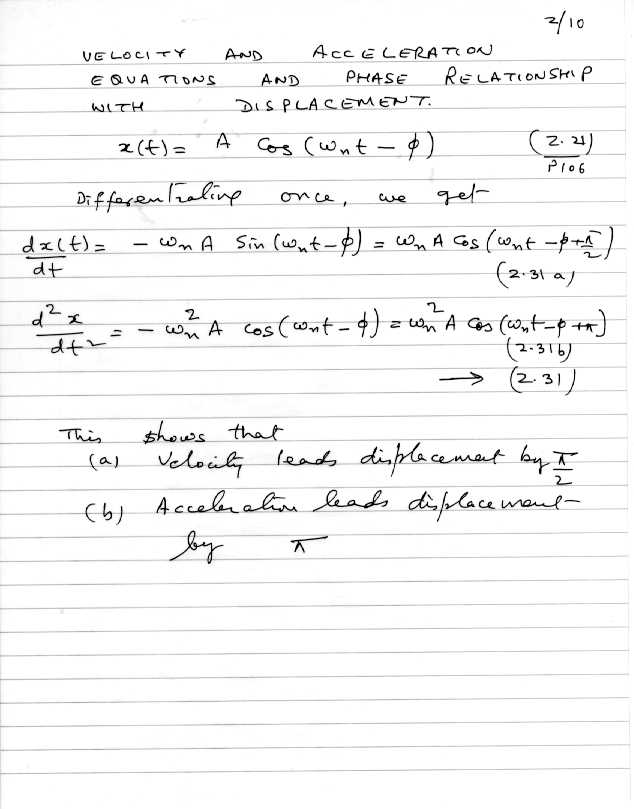 2/10
VELOCITY AND ACCELERATION
EQUATIONS AND PHASE RELATIONSHIP
WITH DISPLACEMENT.
x(t) = A Cos (ωnt − φ) (2.21)
P106
Differentiating once, we get
dx(t)/dt = − ωn A Sin (ωnt − φ) = ωn A Cos (ωnt − φ + π/2)
(2.31 a)
d²x/dt² = − ωn² A cos (ωnt − φ) = ωn² A Cos (ωnt − φ + π)
(2.31b)
→ (2.31)
This shows that
(a) Velocity leads displacement by π/2
(b) Acceleration leads displacement
by π